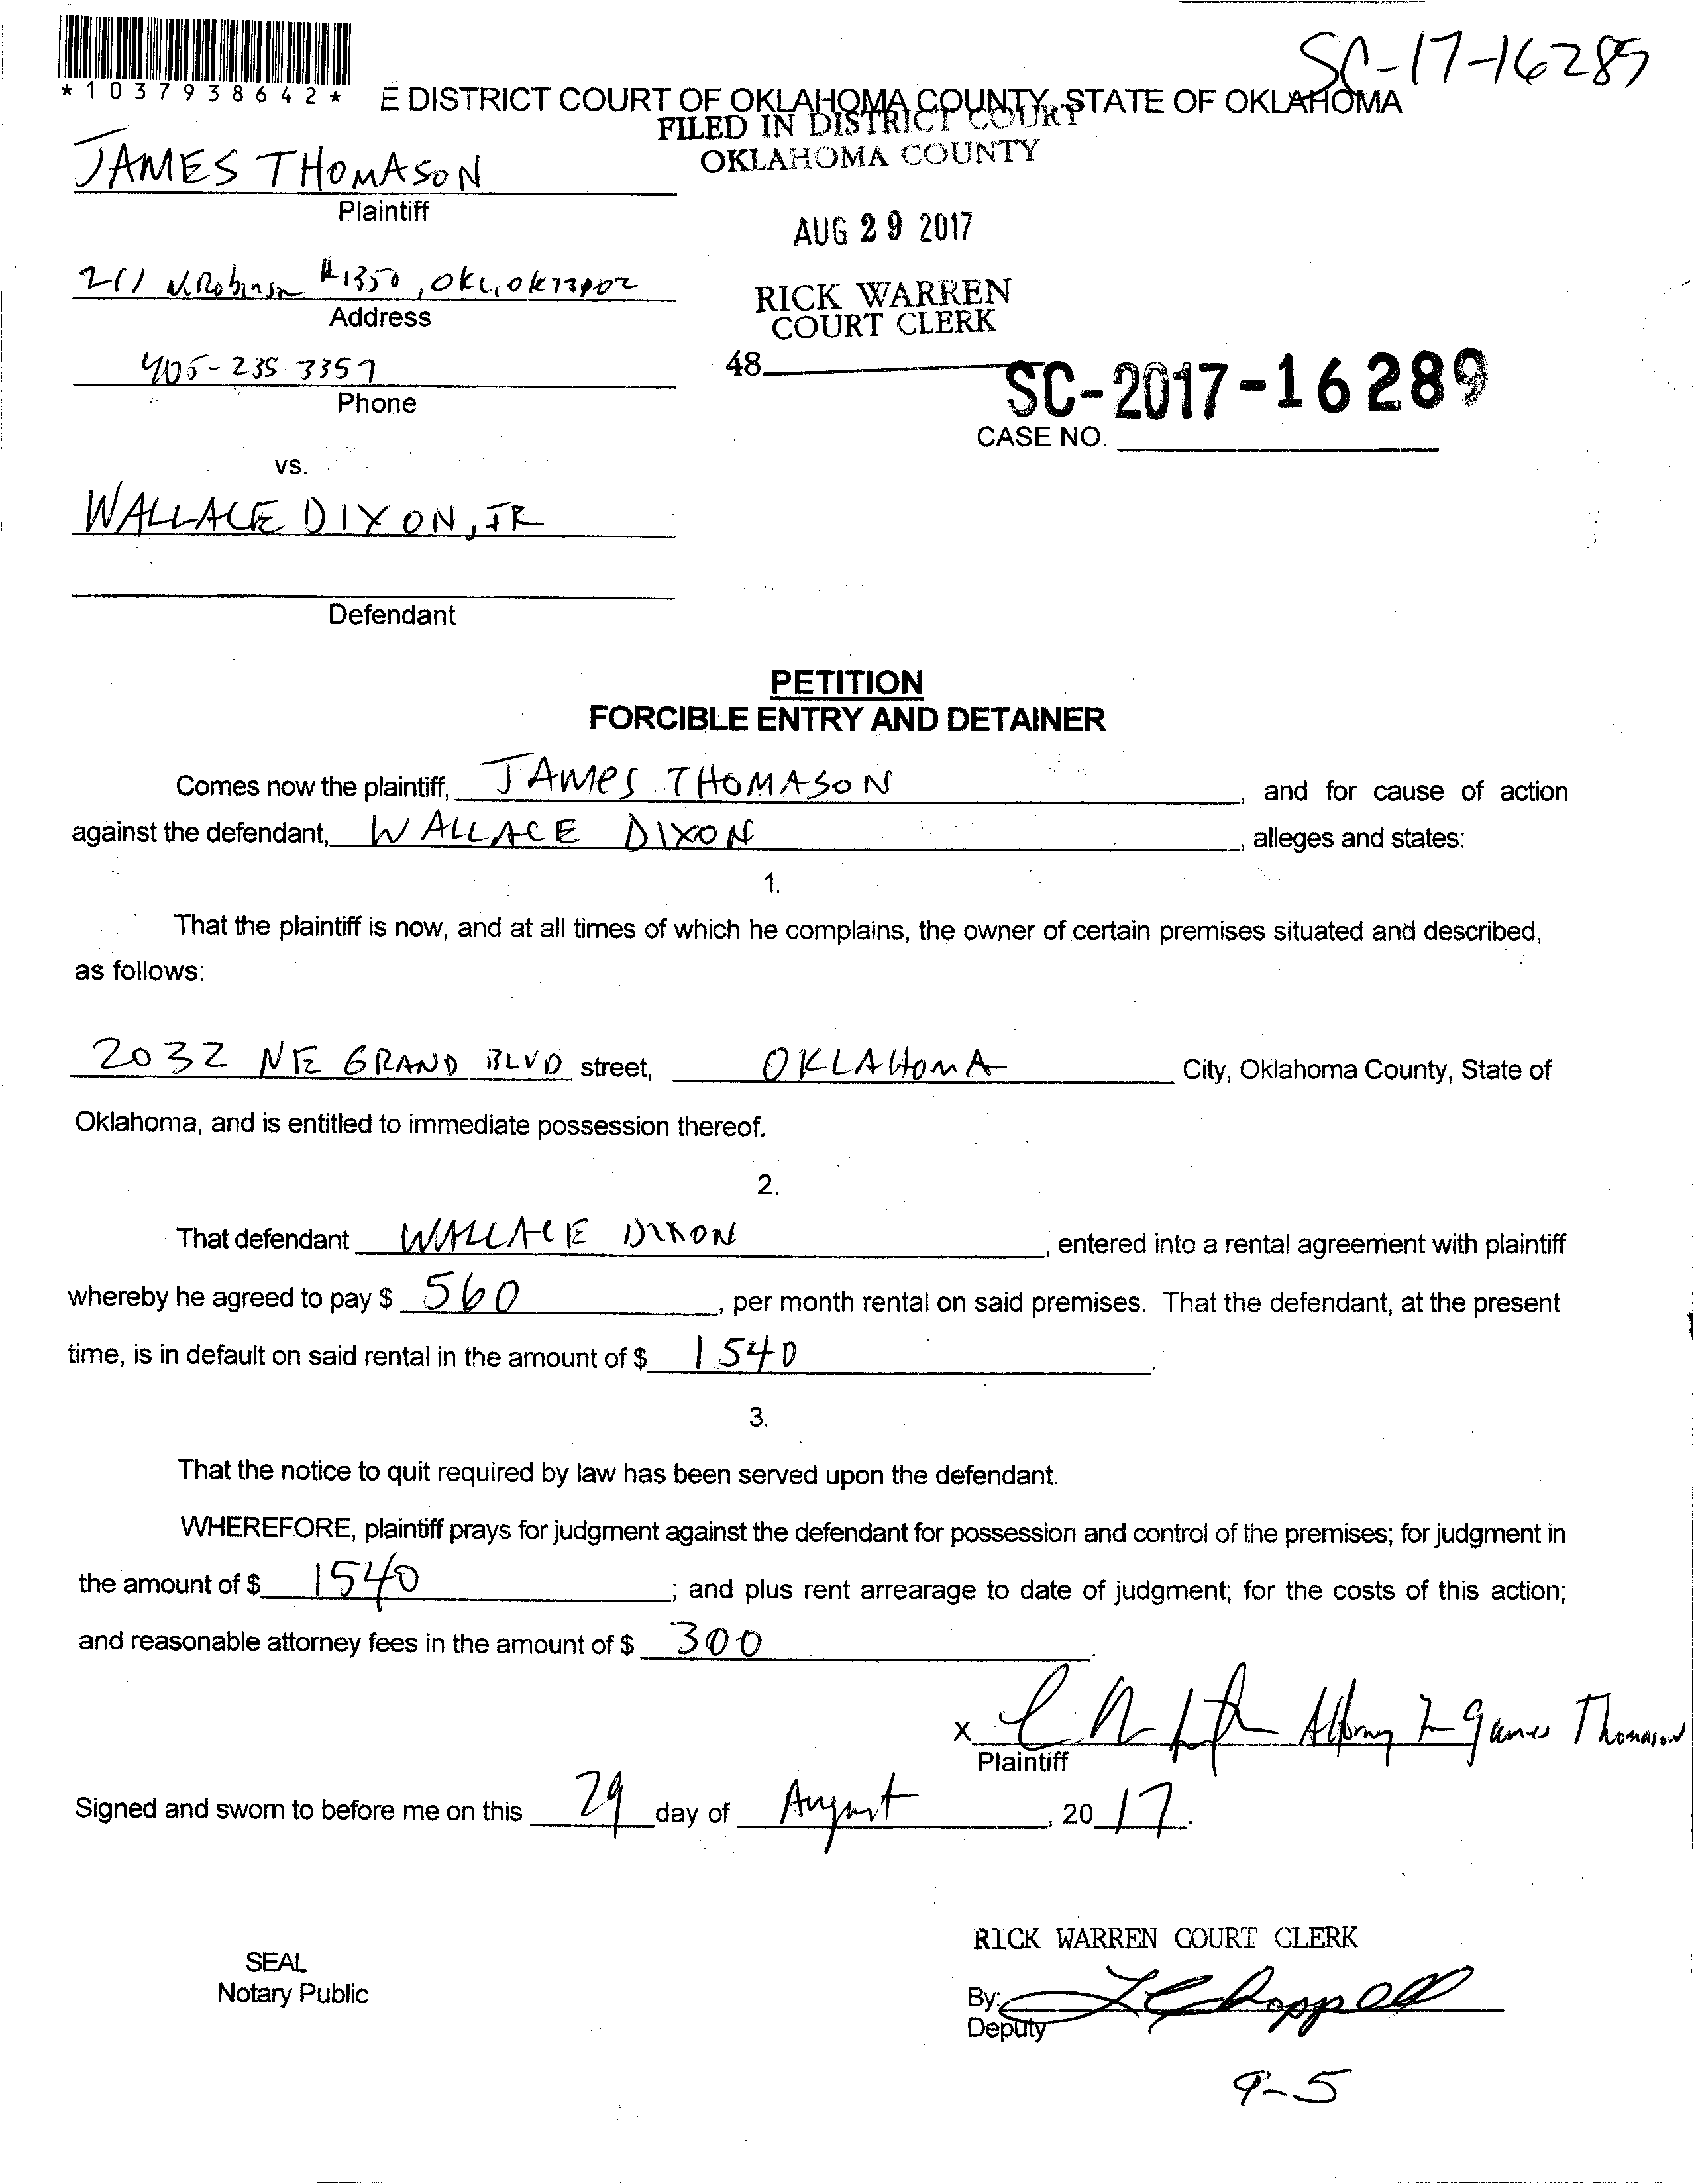 SC-17-16289
*1037938642*
E DISTRICT COURT OF OKLAHOMA COUNTY, STATE OF OKLAHOMA
FILED IN DISTRICT COURT
OKLAHOMA COUNTY
JAMES THOMASON
Plaintiff
AUG 29 2017
211 N. Robinson #1350, OKC, OK 73102
Address
RICK WARREN
COURT CLERK
405-235 3357
Phone
48
SC-2017-16289
CASE NO.
vs.
WALLACE DIXON, JR
Defendant
PETITION
FORCIBLE ENTRY AND DETAINER
Comes now the plaintiff, JAMES THOMASON, and for cause of action
against the defendant, WALLACE DIXON, alleges and states:
1.
That the plaintiff is now, and at all times of which he complains, the owner of certain premises situated and described,
as follows:
2032 NE GRAND BLVD street, OKLAHOMA City, Oklahoma County, State of
Oklahoma, and is entitled to immediate possession thereof.
2.
That defendant WALLACE DIXON, entered into a rental agreement with plaintiff
whereby he agreed to pay $ 560, per month rental on said premises. That the defendant, at the present
time, is in default on said rental in the amount of $ 1540.
3.
That the notice to quit required by law has been served upon the defendant.
WHEREFORE, plaintiff prays for judgment against the defendant for possession and control of the premises; for judgment in
the amount of $ 1540; and plus rent arrearage to date of judgment; for the costs of this action;
and reasonable attorney fees in the amount of $ 300.
X Attorney for James Thomason
Plaintiff
Signed and sworn to before me on this 29 day of August, 2017.
RICK WARREN COURT CLERK
SEAL
Notary Public
By: Chappell
Deputy
9-5